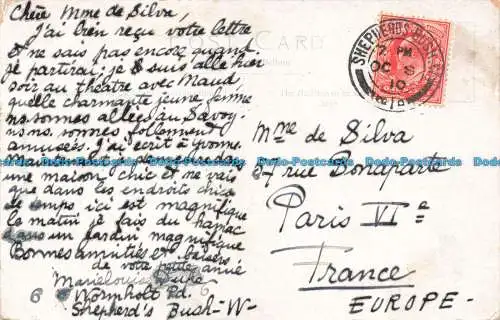 Chère Mme de Silva,
J'ai bien reçu votre lettre
et ne sais pas encore quand
je partirai, je suis allée hier
soir au théâtre avec Maud
quelle charmante jeune femme
nous sommes allées au Savoy
nous nous sommes follement
amusées. J'ai écrit à Yvonne.
une maison chic et ne vais
que dans les endroits chics
le temps ici est magnifique
le matin je fais du
dans un jardin magnifique
Bonnes amitiés et baisers
de votre petite amie
Marielouise
6 Wormholt Rd.
Shepherd's Bush - W -
CARD
SHEPHERDS BUSH
7 PM
OC 8
10
Mme de Silva
37 rue Bonaparte
Paris VIe
France
EUROPE -
Dodo-Postcards Dodo-Postcards Dodo-Postcards Dodo-Postcards Dodo-Postcards